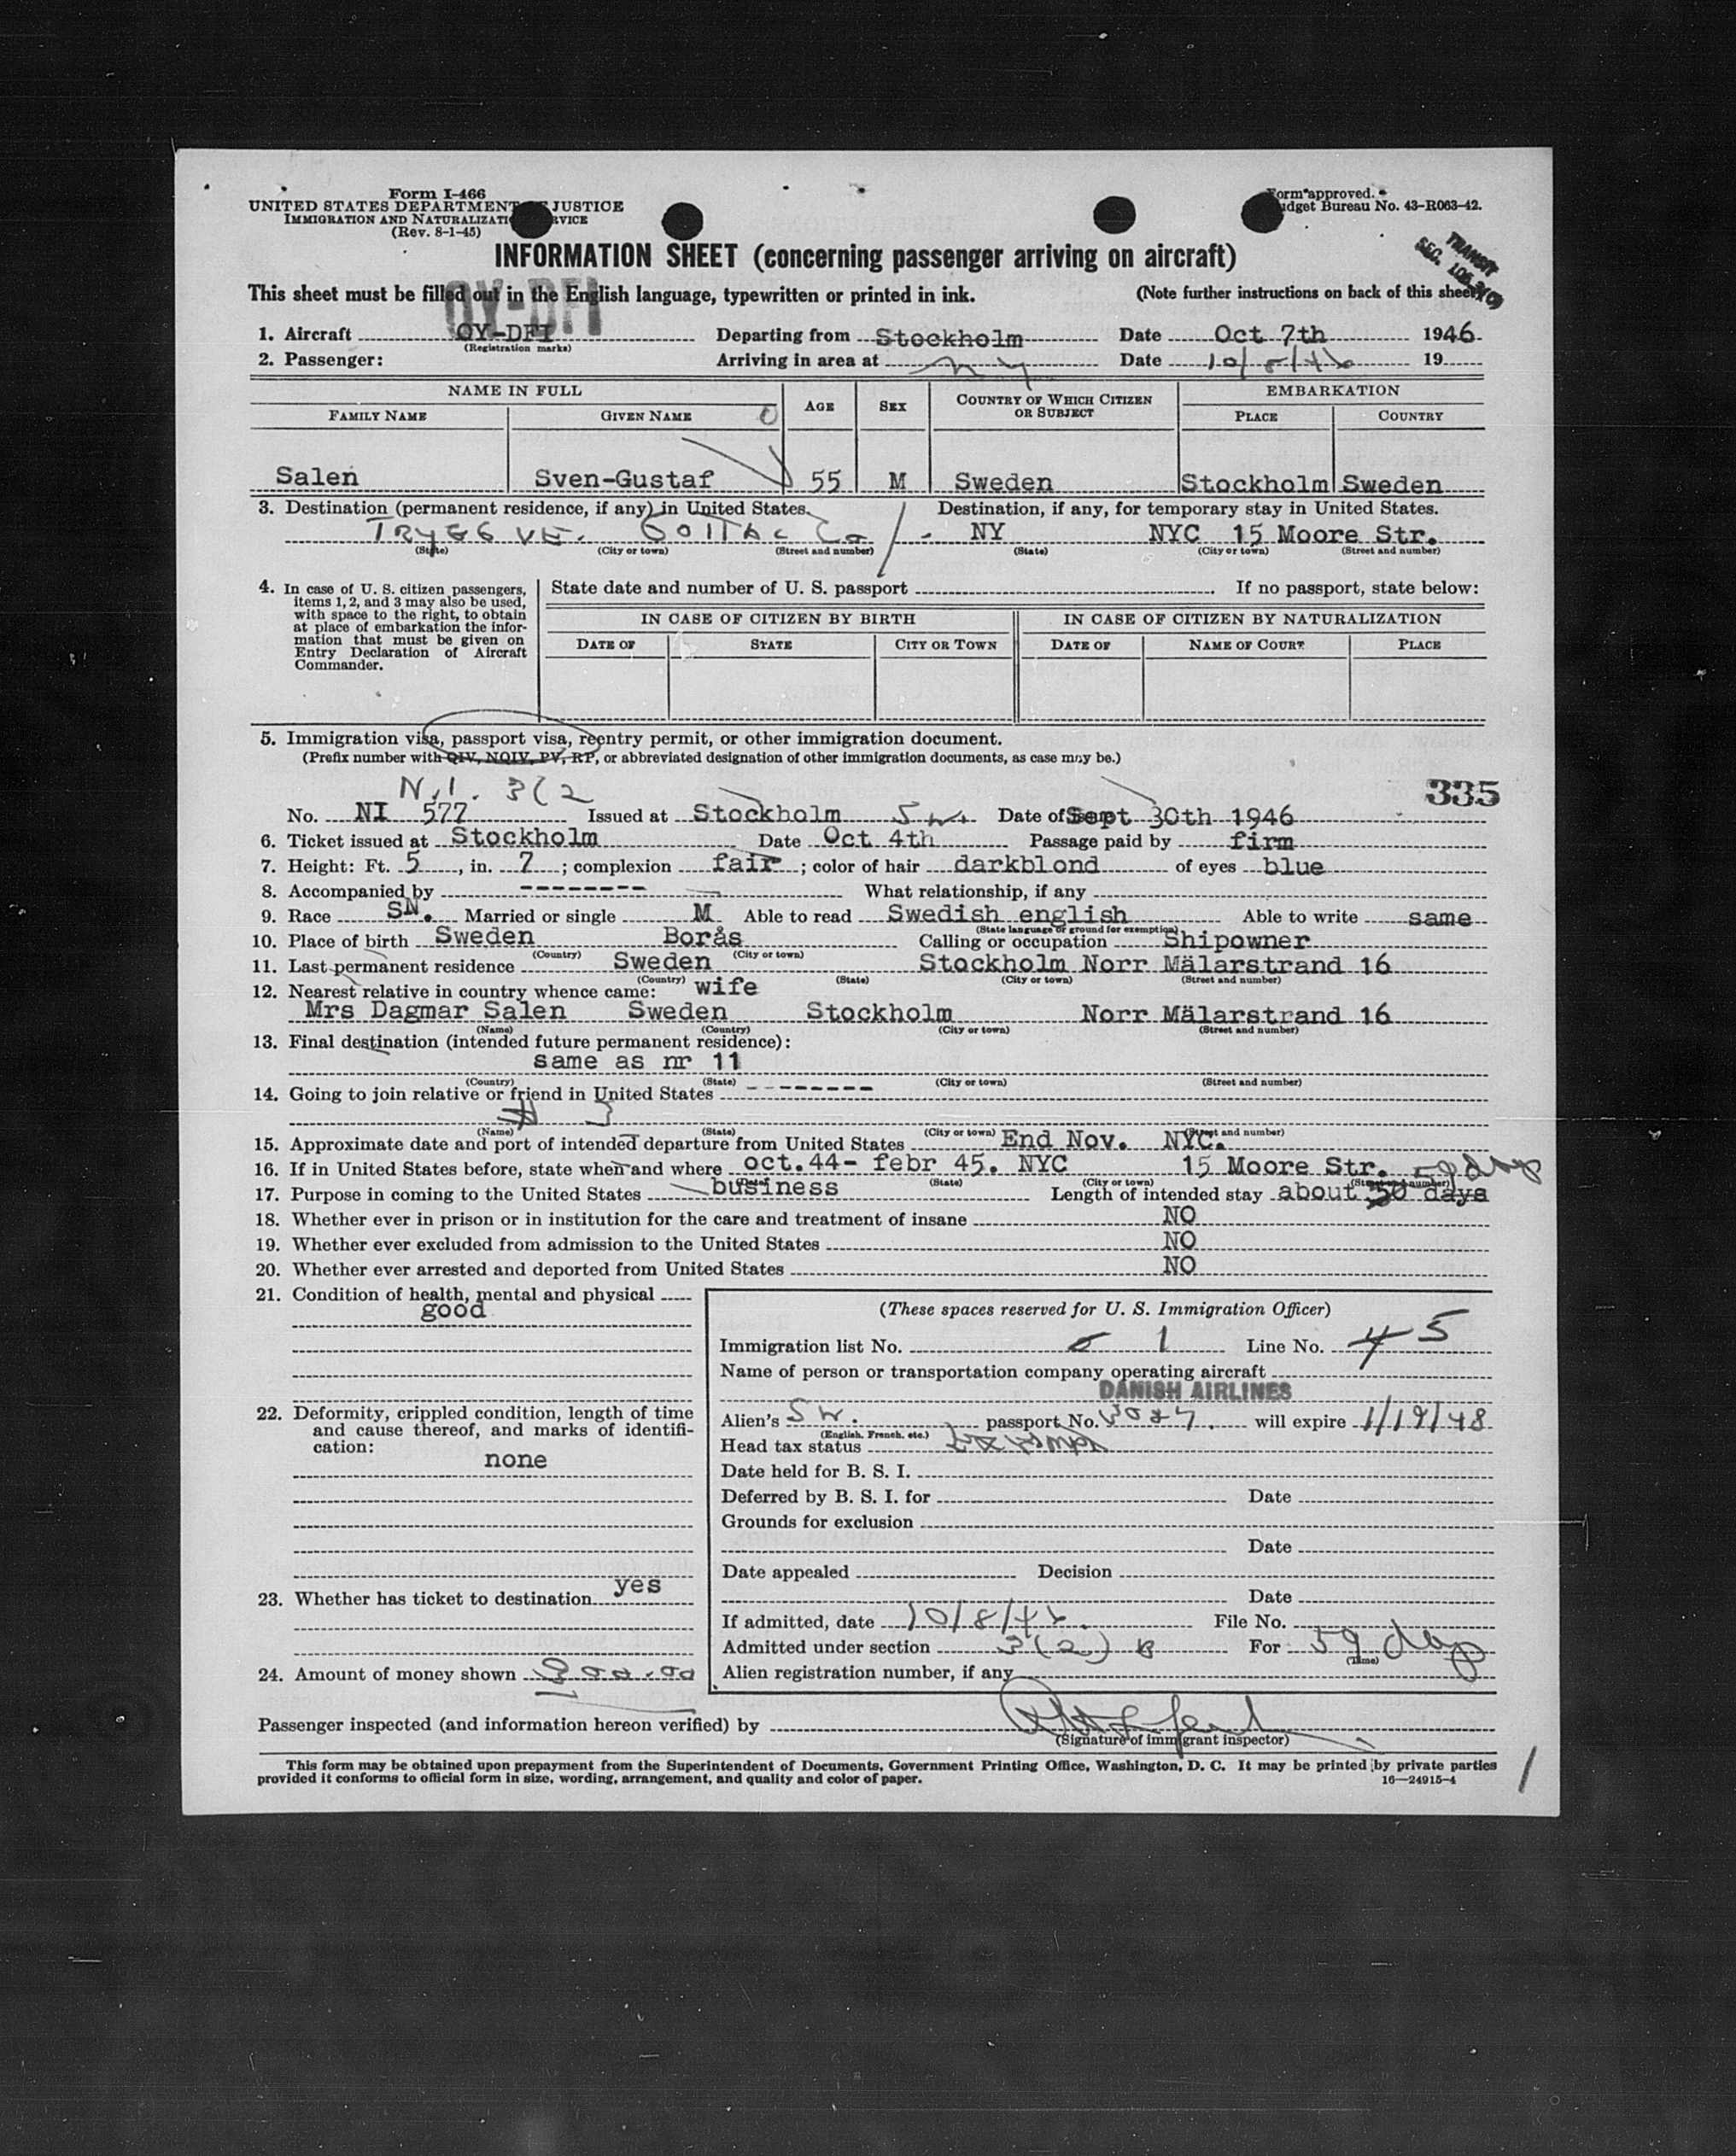 Form I-466
UNITED STATES DEPARTMENT JUSTICE
IMMIGRATION AND NATURALIZATI RVICE
(Rev. 8-1-45)
Form approved.
dget Bureau No. 43-R063-42.
TRANSIT
SEC.
INFORMATION SHEET (concerning passenger arriving on aircraft)
OY-DFI
This sheet must be filled out in the English language, typewritten or printed in ink. (Note further instructions on back of this sheet)
1. Aircraft OY-DFI Departing from Stockholm Date Oct 7th 1946
(Registration marks)
2. Passenger: Arriving in area at NY Date 10/8/46 19
NAME IN FULL AGE SEX COUNTRY OF WHICH CITIZEN OR SUBJECT EMBARKATION
FAMILY NAME GIVEN NAME PLACE COUNTRY
Salen Sven-Gustaf 55 M Sweden Stockholm Sweden
3. Destination (permanent residence, if any) in United States. Destination, if any, for temporary stay in United States.
NY NYC 15 Moore Str.
(State) (City or town) (Street and number) (State) (City or town) (Street and number)
4. In case of U. S. citizen passengers, items 1, 2, and 3 may also be used, with space to the right, to obtain at place of embarkation the information that must be given on Entry Declaration of Aircraft Commander.
State date and number of U. S. passport If no passport, state below:
IN CASE OF CITIZEN BY BIRTH IN CASE OF CITIZEN BY NATURALIZATION
DATE OF STATE CITY OR TOWN DATE OF NAME OF COURT PLACE
5. Immigration visa, passport visa, reentry permit, or other immigration document.
(Prefix number with QIV, NQIV, PV, RP, or abbreviated designation of other immigration documents, as case may be.)
N.I. 3(2 335
No. NI 577 Issued at Stockholm Sw. Date of Sept 30th 1946
6. Ticket issued at Stockholm Date Oct 4th Passage paid by firm
7. Height: Ft. 5, in. 7; complexion fair; color of hair darkblond of eyes blue
8. Accompanied by -------- What relationship, if any
9. Race SN. Married or single M Able to read Swedish english Able to write same
(State language or ground for exemption)
10. Place of birth Sweden Borås Calling or occupation Shipowner
(Country) (City or town)
11. Last permanent residence Sweden Stockholm Norr Mälarstrand 16
(Country) (State) (City or town) (Street and number)
12. Nearest relative in country whence came: wife
Mrs Dagmar Salen Sweden Stockholm Norr Mälarstrand 16
(Name) (Country) (City or town) (Street and number)
13. Final destination (intended future permanent residence):
same as nr 11
(Country) (State) (City or town) (Street and number)
14. Going to join relative or friend in United States ---------
# 3
(Name) (State) (City or town) (Street and number)
15. Approximate date and port of intended departure from United States End Nov. NYC.
16. If in United States before, state when and where oct.44- febr 45. NYC 15 Moore Str.
(State) (City or town) (Street and number)
17. Purpose in coming to the United States business Length of intended stay about 50 days
18. Whether ever in prison or in institution for the care and treatment of insane NO
19. Whether ever excluded from admission to the United States NO
20. Whether ever arrested and deported from United States NO
21. Condition of health, mental and physical
good
22. Deformity, crippled condition, length of time and cause thereof, and marks of identification:
none
23. Whether has ticket to destination yes
24. Amount of money shown
(These spaces reserved for U. S. Immigration Officer)
Immigration list No. 1 Line No. 5
Name of person or transportation company operating aircraft
DANISH AIRLINES
Alien's Sw. passport No. will expire 1/19/48
(English, French, etc.)
Head tax status Exempt
Date held for B. S. I.
Deferred by B. S. I. for Date
Grounds for exclusion
Date
Date appealed Decision
Date
If admitted, date 10/8/46. File No.
Admitted under section 3(2) B For 59 days
(Time)
Alien registration number, if any
Passenger inspected (and information hereon verified) by
(Signature of immigrant inspector)
This form may be obtained upon prepayment from the Superintendent of Documents, Government Printing Office, Washington, D. C. It may be printed by private parties
provided it conforms to official form in size, wording, arrangement, and quality and color of paper. 16—24915-4